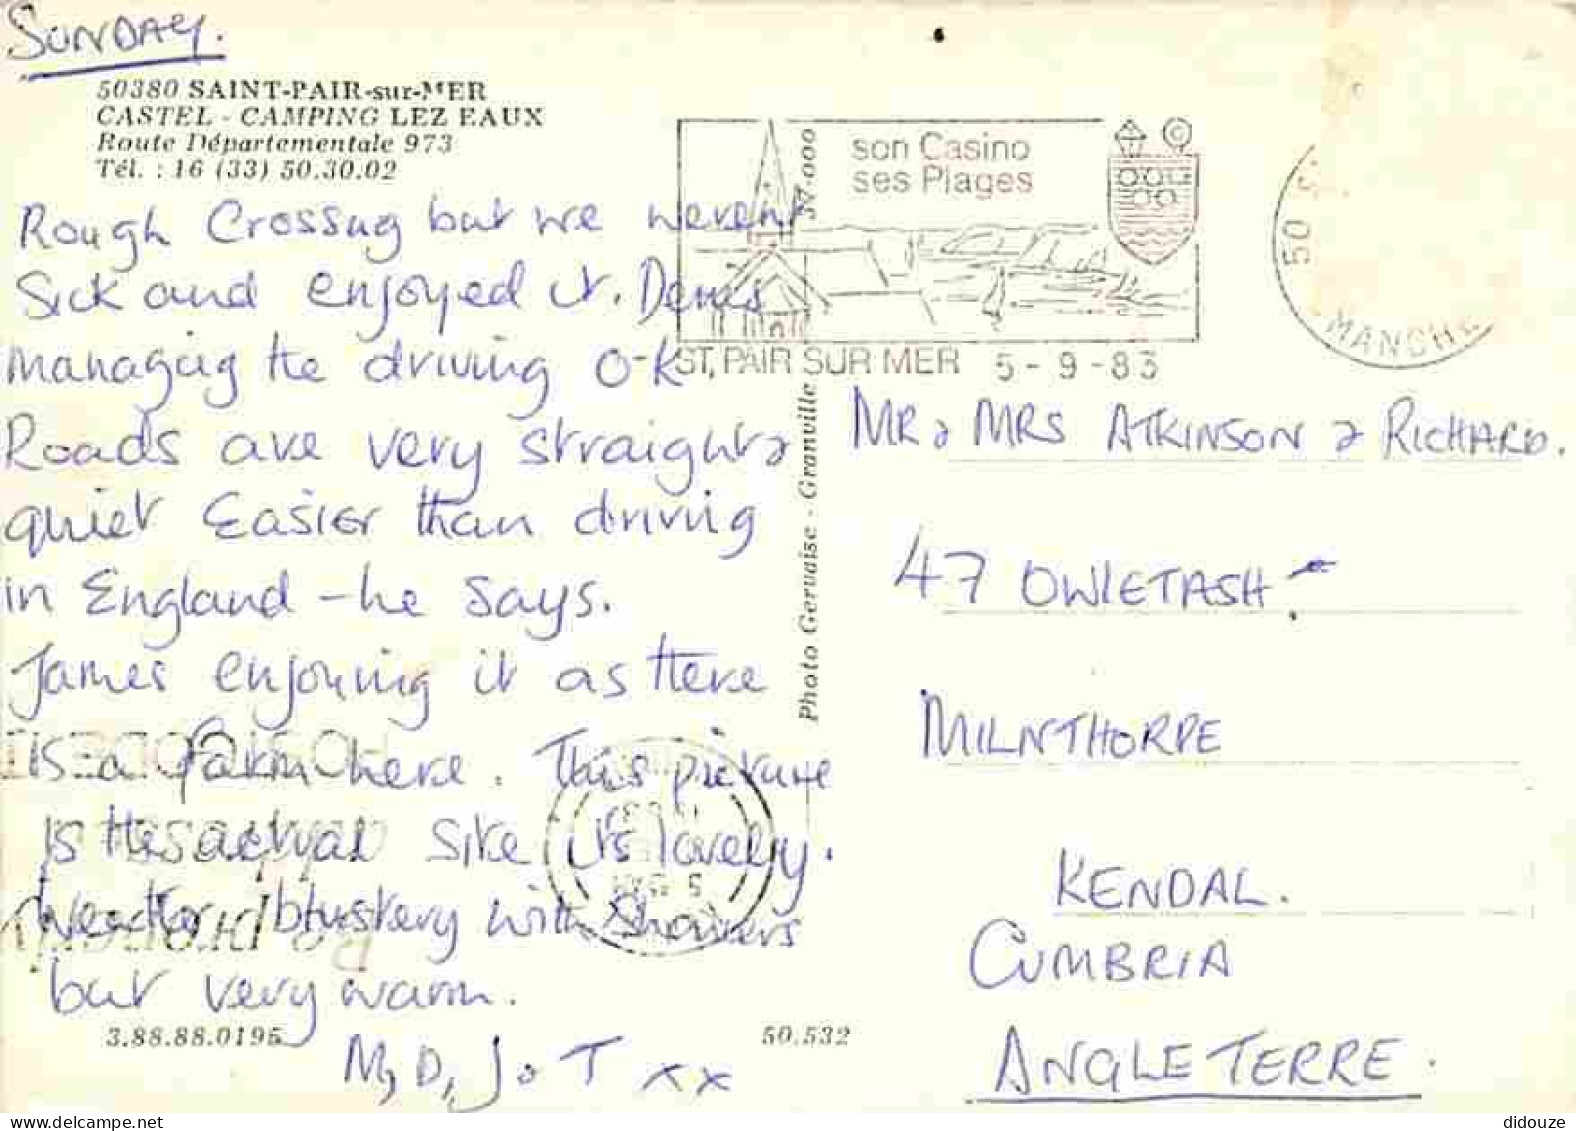 SUNDAY.
50380 SAINT-PAIR-sur-MER
CASTEL - CAMPING LEZ EAUX
Route Départementale 973
Tél. : 16 (33) 50.30.02
Rough Crossing but we werent
Sick and enjoyed it. Denis
managing the driving O-K
Roads are very straight &
quiet Easier than driving
in England - he says.
James enjoying it as there
is a farm here. This picture
is the actual site its lovely.
Weather blustery with Showers
but very warm.
M, D, J & T xx
3.88.88.0195
50.532
Photo Gervaise - Granville
son Casino
ses Plages
ST, PAIR SUR MER 5-9-83
50
MANCHE
MR & MRS ATKINSON & RICHARD.
47 OWLETASH
MILNTHORPE
KENDAL.
CUMBRIA
ANGLETERRE.
didouze